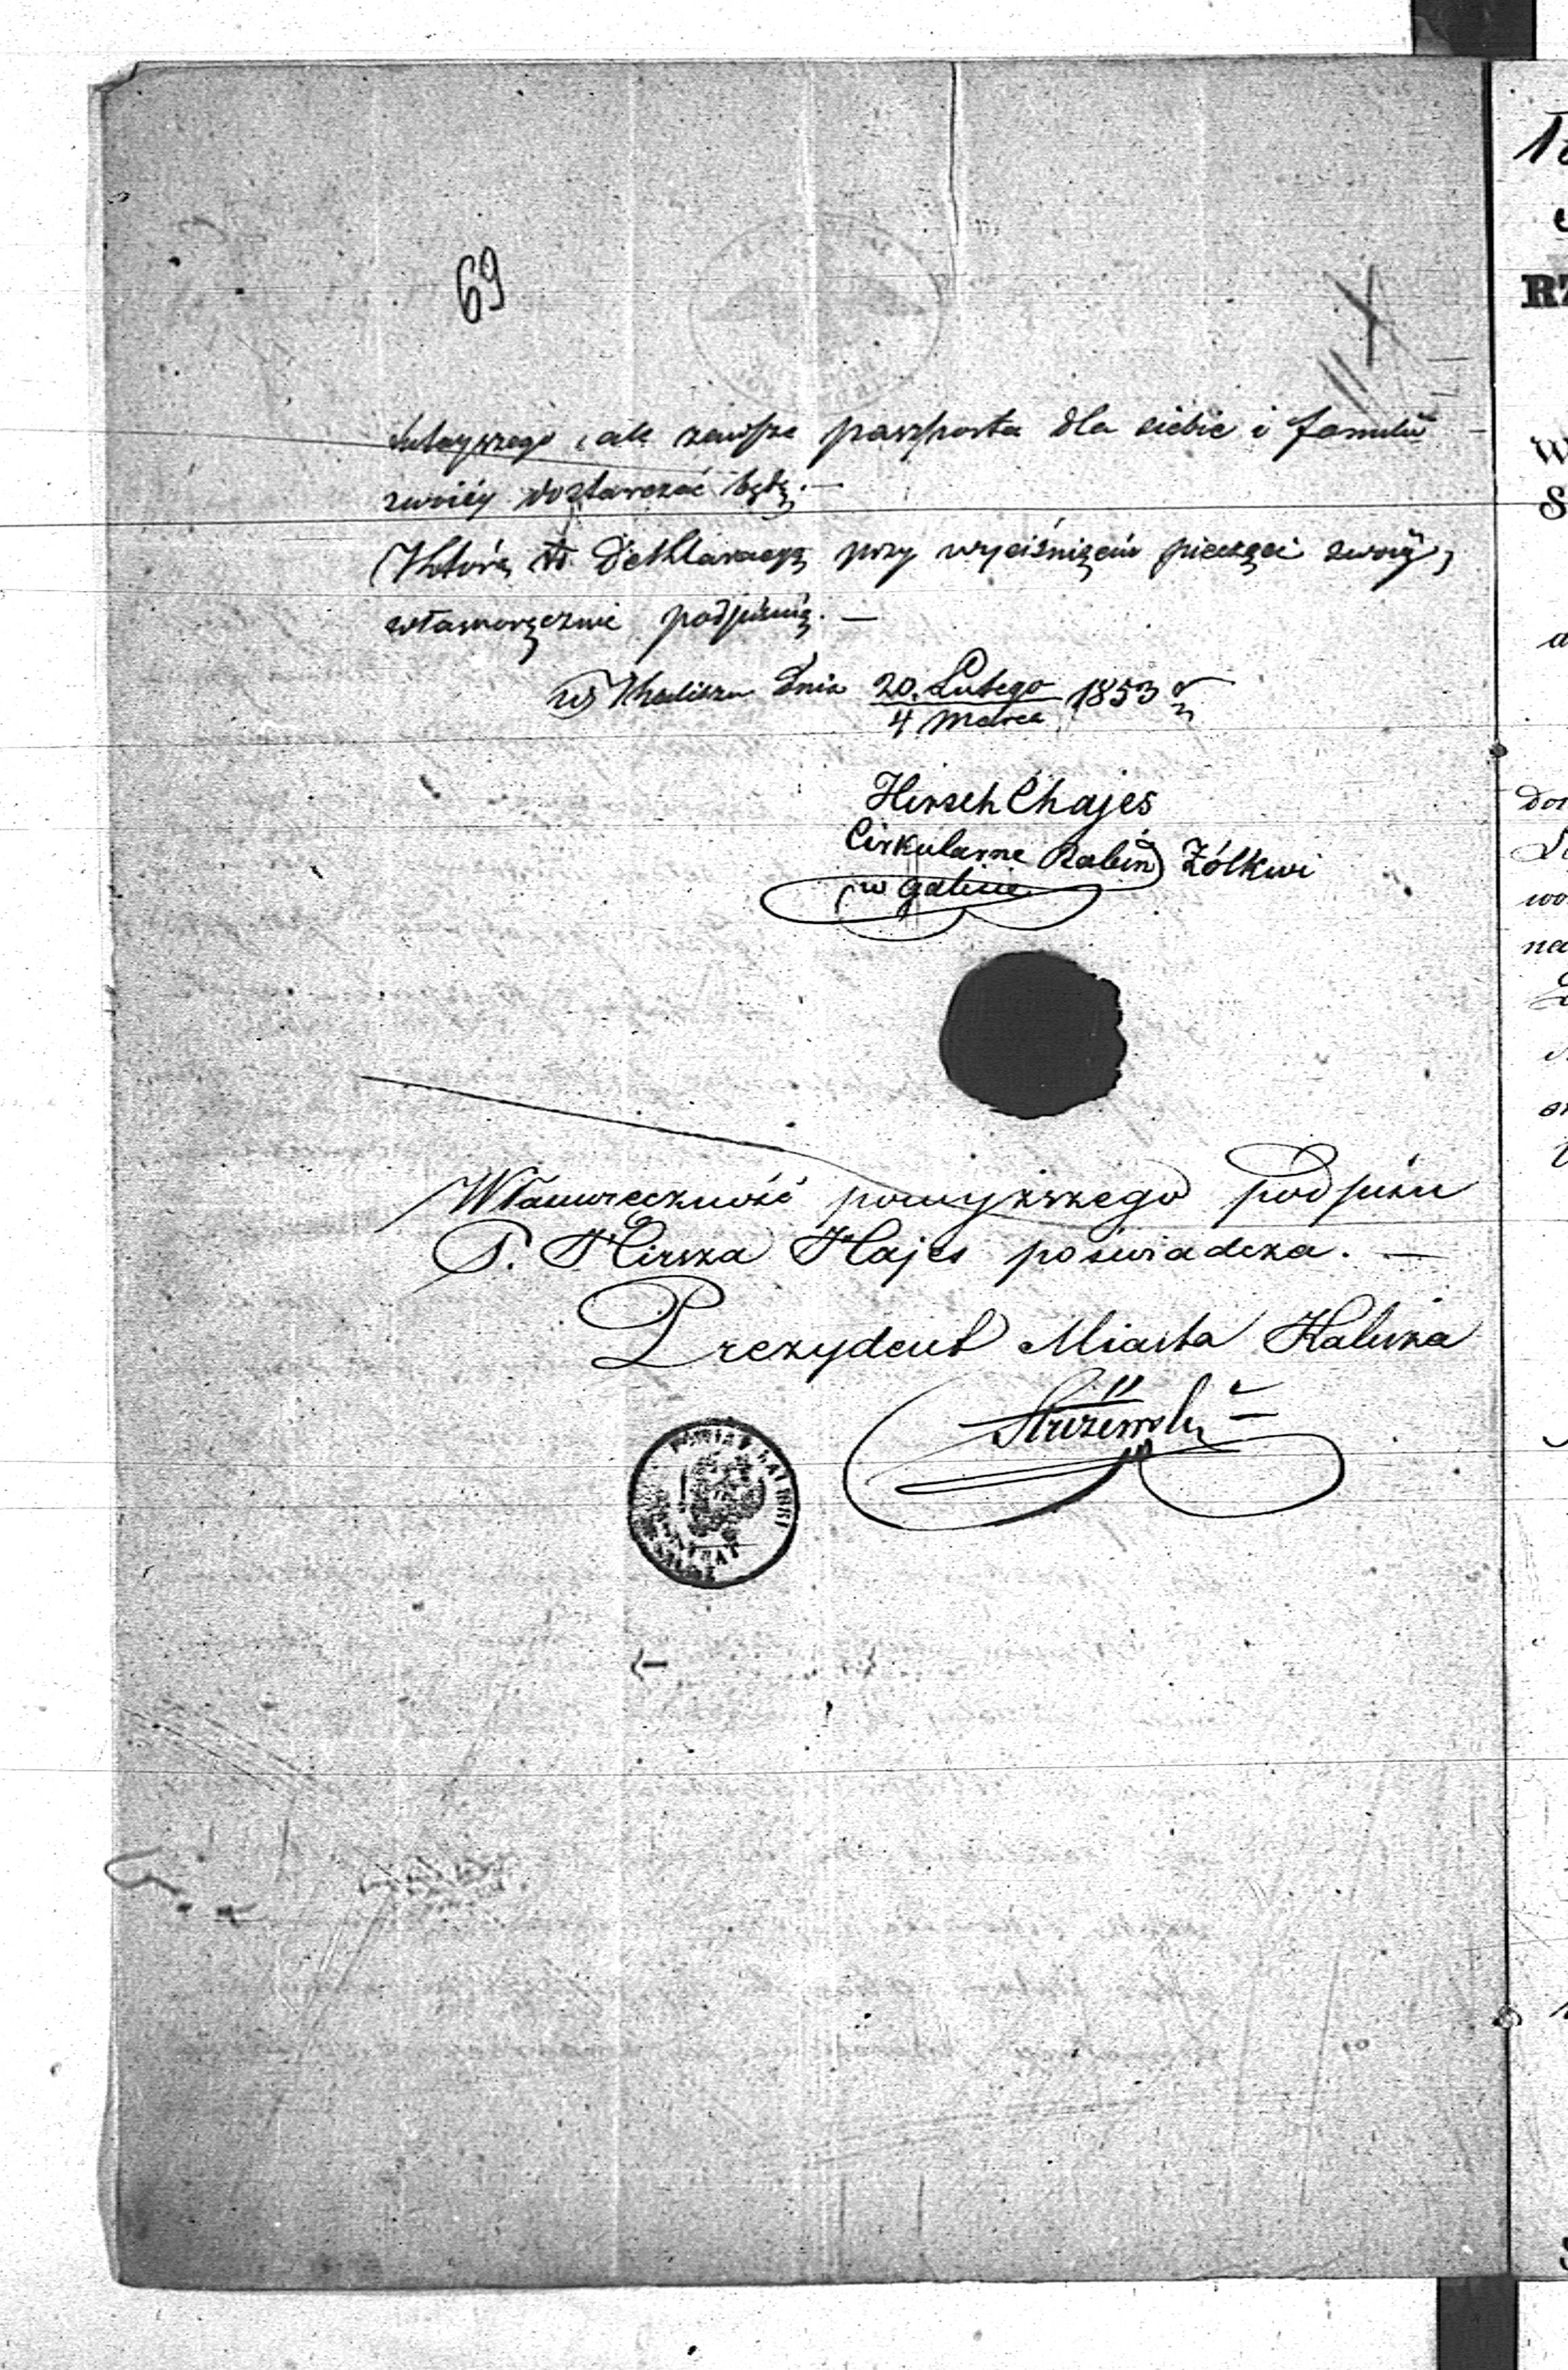 69
tutayszego, ale zawsze paszporta dla siebie i familii
swoiéy dostarczać będę. —
Którą to Deklaracyą przy wyciśnięciu pieczęci swoiéy,
własnoręcznie podpisuię. —
w Kaliszu dnia 20. Lutego / 4 Marca 1853 r
Hirsch Chajes
Cirkularne Rabin Żółkwi
w galicie
Własnoręczność powyższego podpisu
P. Hirsza Hajes poświadcza. —
Prezydent Miasta Kalisza